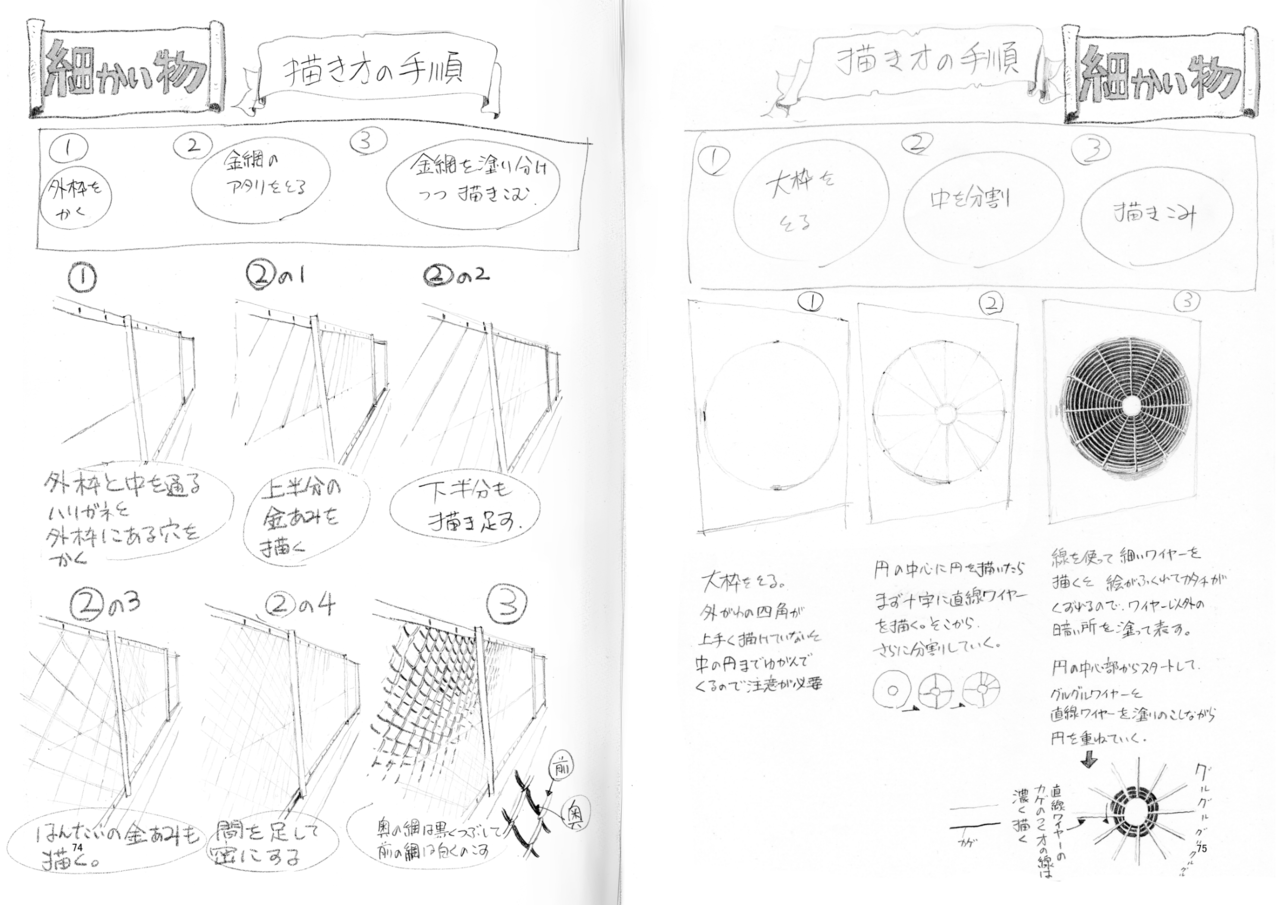 細かい物
描き方の手順
①
外枠を
かく
②
金網の
アタリをとる
③
金網を塗り分け
つつ 描きこむ
①
外枠と中を通る
ハリガネと
外枠にある穴を
かく
②の1
上半分の
金あみを
描く
②の2
下半分も
描き足す.
②の3
はんたいの金あみも
描く。
②の4
間を足して
密にする
③
奥の網は黒くつぶして
前の網は白くのこす
前
奥
74
描き方の手順
細かい物
①
大枠を
とる
②
中を分割
③
描きこみ
①
大枠をとる。
外がわの四角が
上手く描けていないと
中の円までゆがんで
くるので注意が必要
②
円の中心に円を描いたら
まず十字に直線ワイヤー
を描く。そこから
さらに分割していく。
③
線を使って細いワイヤーを
描くと 絵がふくれてカタチが
くずれるので、ワイヤー以外の
暗い所を塗って表す。
円の中心部からスタートして、
グルグルワイヤーと
直線ワイヤーを塗りのこしながら
円を重ねていく。
カゲ
直線ワイヤーの
カゲのつく方の線は
濃く描く
グルグルグルグルグル
75